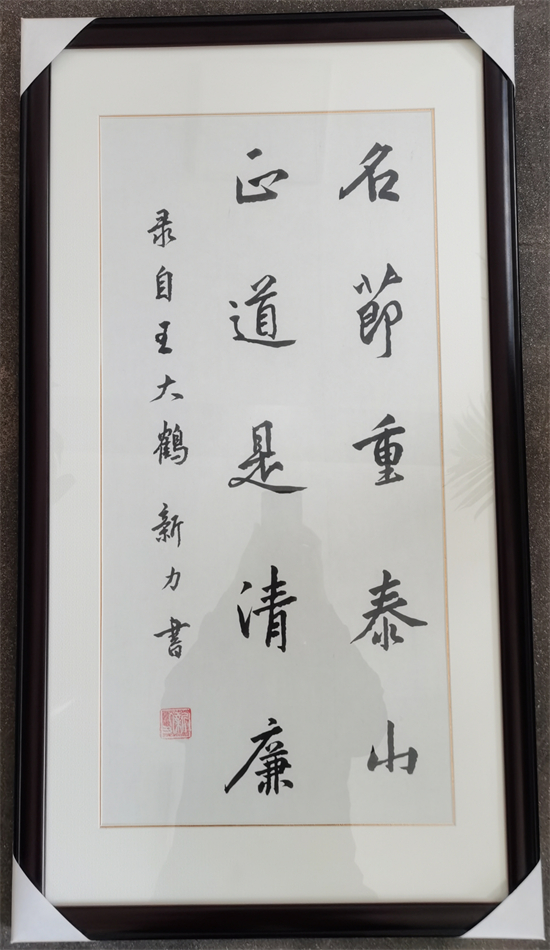 名節重泰山
正道是清廉
录自王大鶴 新力書